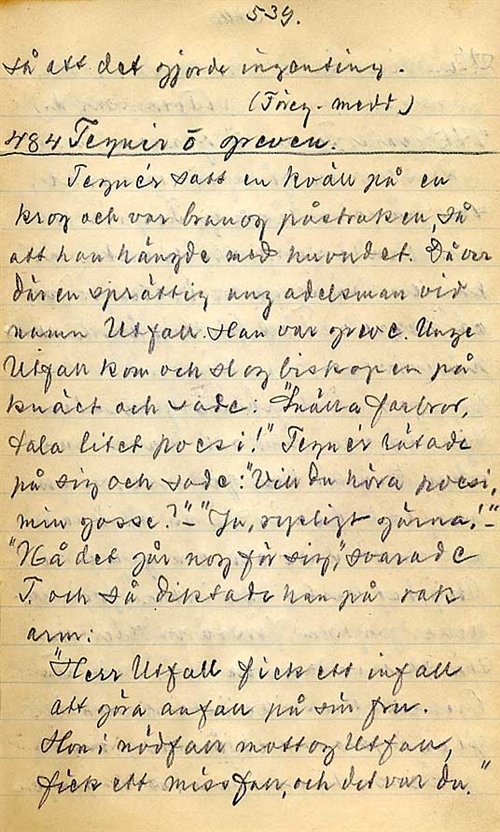 539.
så att det gjorde ingenting.
(Föreg. medd.)
484 Tegnér o greven.
Tegnér satt en kväll på en
krog och var bra nog påstruken, så
att han hängde med huvudet. Då var
där en sprättig ung adelsman vid
namn Utfall. Han var greve. Unge
Utfall kom och slog biskopen på
knäet och sade: "Snälla farbror,
tala litet poesi!" Tegnér rätade
på sig och sade: "Vill du höra poesi,
min gosse?"-"Ja, rysligt gärna!"-
"Nå det går nog för sig," svarade
T. och så diktade han på rak
arm:
"Herr Utfall fick ett infall
att göra anfall på sin fru.
Hon i nödfall mottog Utfall,
fick ett missfall, och det var du."